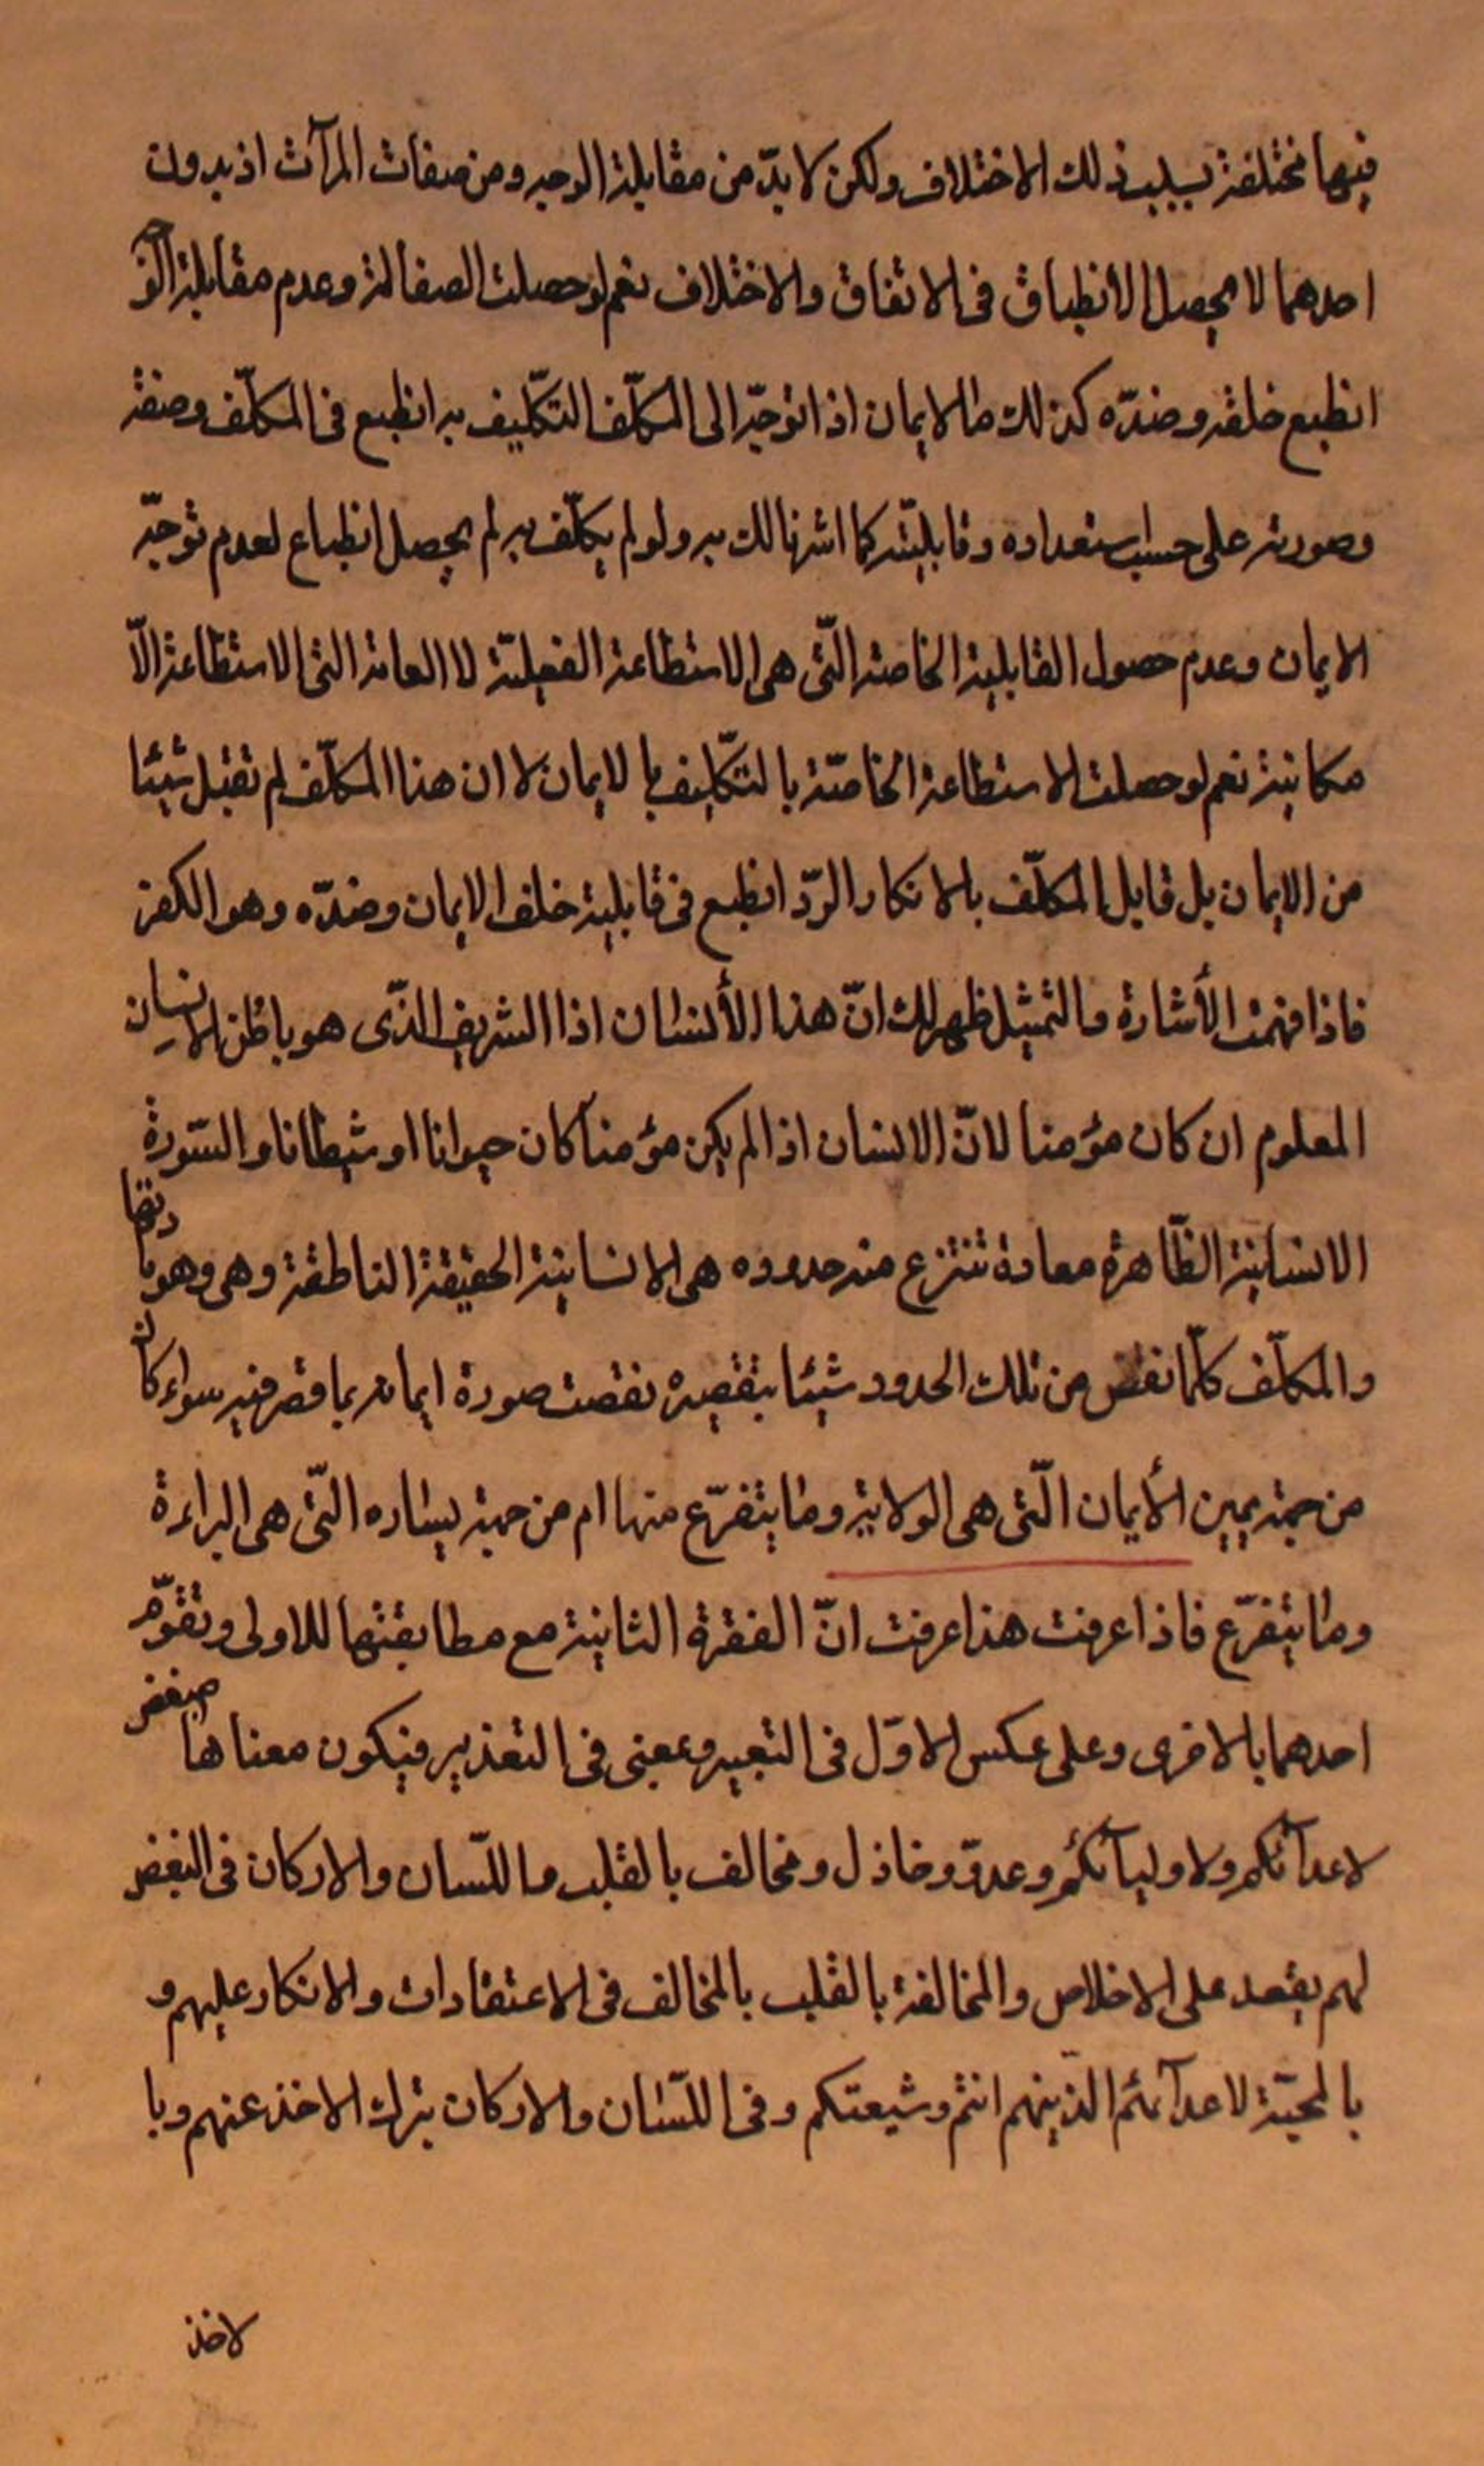 فيها مختلفة بسبب ذلك الاختلاف ولكن لا بدّ من مقابلة الوجه ومن صفات المرآت اذ بدون
احدهما لا يحصل الأنطباق فى الاتفاق والاختلاف نعم لو حصلت الصفالة وعدم مقابلة الوجه
انطبع خلفه وضدّه كذلك ماالايمان اذا توجّه الى المكلّف التكّليف به انطبع فى المكلّف وصفة
وصورته على حسب استعداده وقابليّته كما اشرنا لك به ولو لم يكلّف به لم يحصل انطباع لعدم توجّه
الايمان وعدم حصول القابلية الخاصة الّتى هى الاستطاعة الفعليّة لا العامة التى الاستطاعة الّا
مكانية نعم لو حصلت الاستطاعة الخاصّة بالتكّليف بالايمان لا ان هذا المكلّف لم تقبل شيئا
من الايمان بل قابل المكلّف بالانكار والرّد انطبع فى قابلية خلف الايمان وضدّه وهو الكفر
فاذا فهمت الأشارة والتمثيل ظهر لك انّ هذا الأنسان اذا الشريف الذّى هو باطن الانسان
المعلوم ان كان مؤمنا لانّ الانسان اذا لم يكن مؤمنا كان حيوانا او شيطانا والسّورة
الانسانية الظّاهرة معادة تنتزع منه حدوده هى الانسانية الحقيقة الناطقة وهى وهو
والمكلّف كلّما نقص من تلك الحدود شيئا بتقصيره نقصت صورة ايمانه بما قصر فيه سواء كان
من جهة يمين الأيمان الّتى هى الولاية وما يتفرّع منها ام من جهة يساره التّى هى البراءة
وما يتفرّع فاذا عرفت هذا عرفت انّ الفقرة الثانية مع مطابقتها للاولى وتقوّم
احدهما بالاخرى وعلى عكس الاوّل فى التعبير وعنى فى التعذير فيكون معناها مبغض
لاعدآئكم ولاوليآئكم وعدوّ وخاذل ومخالف بالقلب واللّسان والاركان فى البغض
لهم يقعد على الاخلاص والمخالفة بالقلب بالمخالف فى الاعتقادات والانكار عليهم و
بالمحبّة لاعدآئهم الذّينهم انتم وشيعتكم وفى اللّسان والاركان بترك الاخذ عنهم وبا
لاخذ